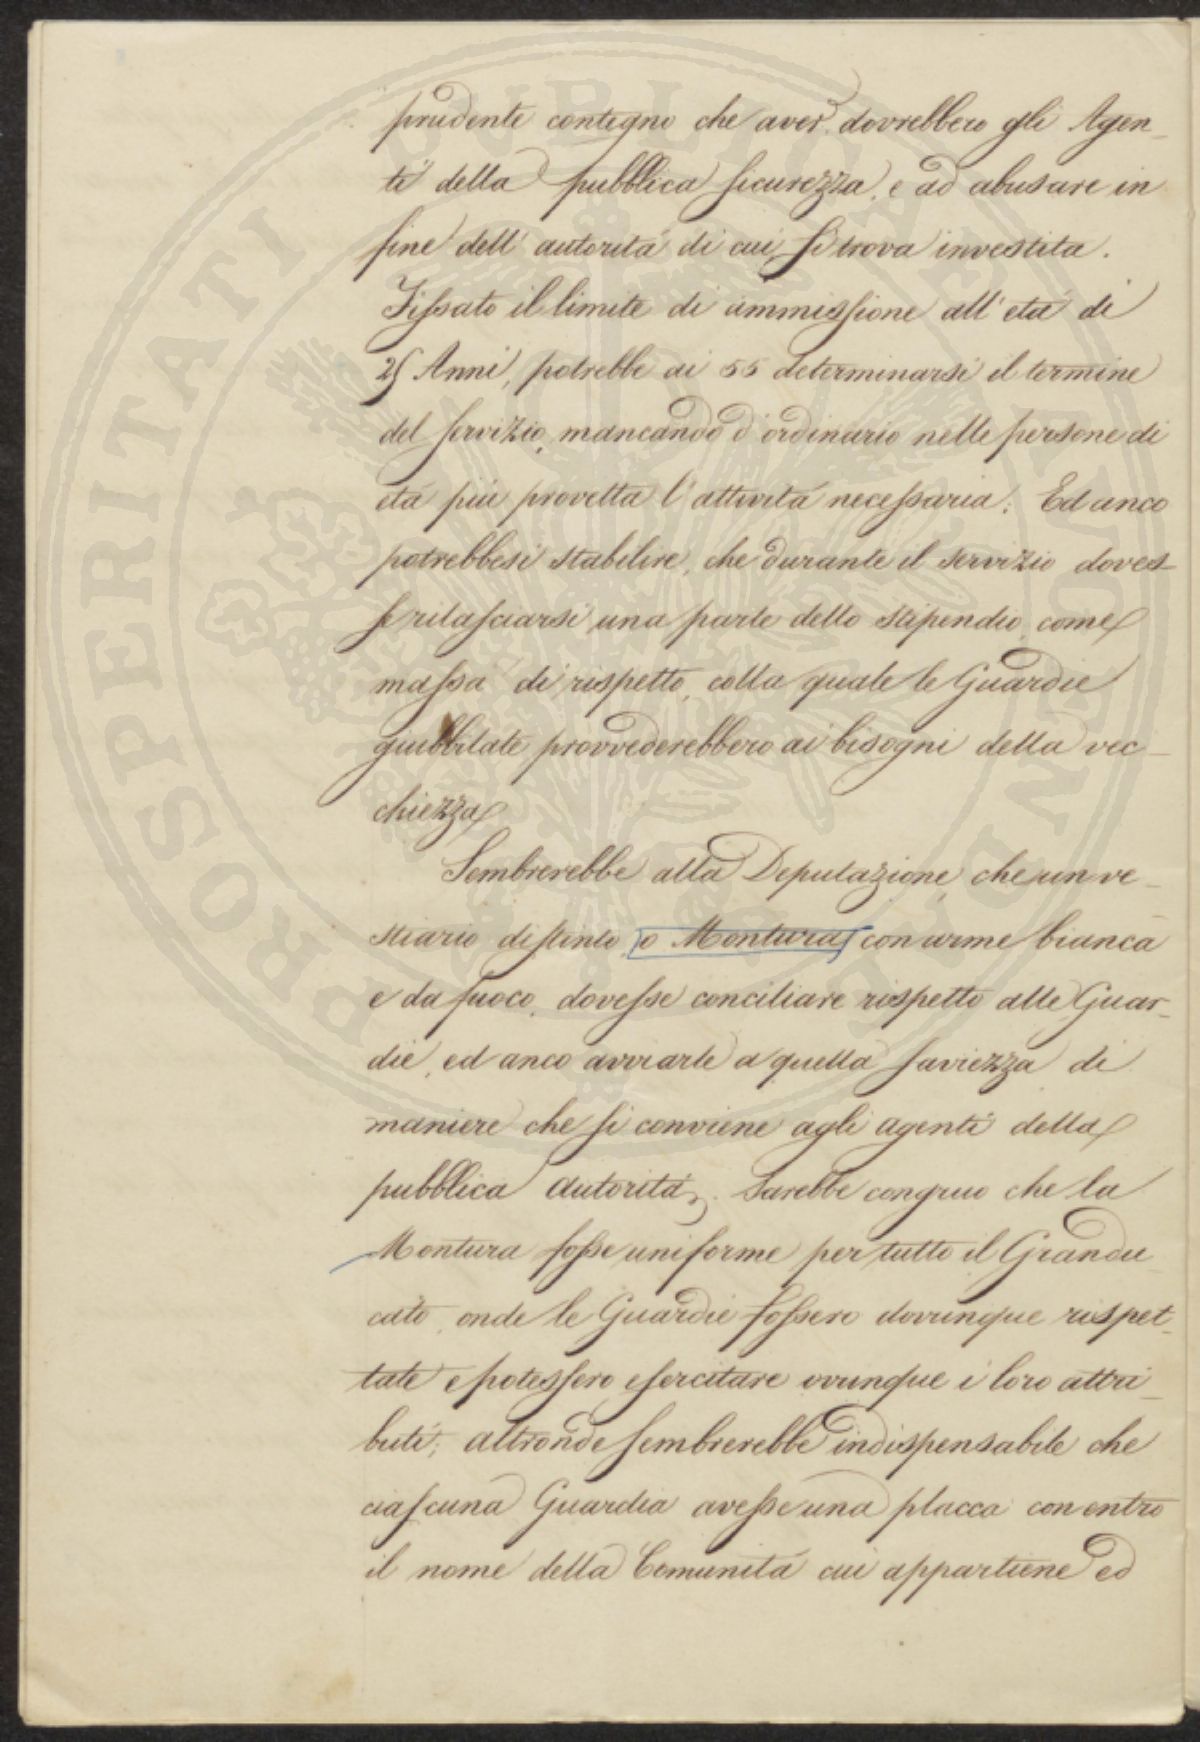 prudente contegno che aver dovrebbero gli Agen-
ti della pubblica sicurezza, e ad abusare in
fine dell'autorità di cui si trova investita.
Fissato il limite di ammissione all'età di
25 Anni, potrebbe ai 55 determinarsi il termine
del servizio, mancando d'ordinario nelle persone di
età più provetta l'attività necessaria; Ed anco
potrebbesi stabilire, che durante il servizio doves-
se rilasciarsi una parte dello stipendio, come
massa di rispetto, colla quale le Guardie
giubbilate provvederebbero ai bisogni della vec-
chiezza
Sembrerebbe alla Deputazione, che un ve-
stiario distinto, o Montura con arme bianca
e da fuoco, dovesse conciliare rispetto alle Guar-
die, ed anco avviarle a quella saviezza di
maniere che si conviene agli agenti della
pubblica autorità. Sarebbe congruo che la
Montura fosse uniforme per tutto il Grandu-
cato, onde le Guardie fossero dovunque rispet-
tate e potessero esercitare ovunque i loro attri-
buti; altronde sembrerebbe indispensabile che
ciascuna Guardia avesse una placca con entro
il nome della Comunità cui appartiene ed
PROSPERITATI PUBLICAE AUGENDAE